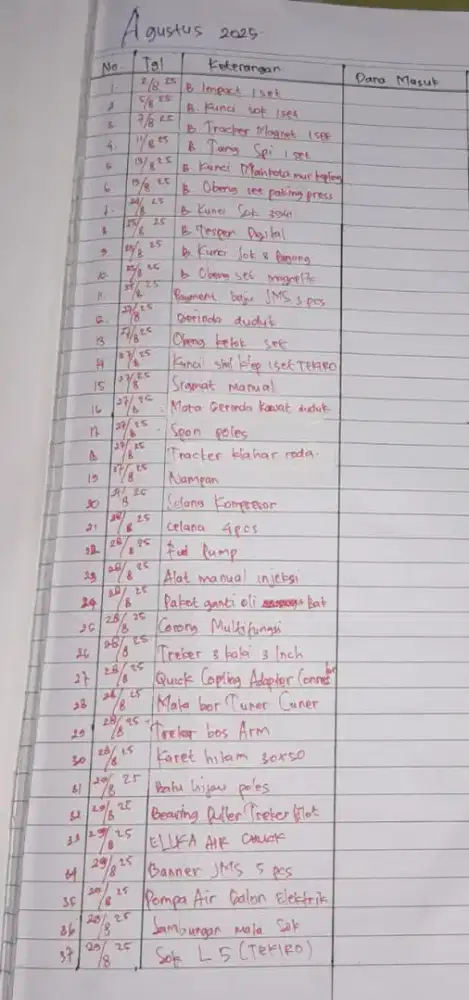 Agustus 2025
No. Tgl Keterangan Dana Masuk
1. 2/8 25 B Impact 1 set
2 5/8 25 B. Kunci sok 1 set
3. 7/8 25 B Tracker Magnet 1 set
4. 11/8 25 B Tang Spi 1 set
5 13/8 25 B Kunci Mahkota mur kopling
6 13/8 25 B Obeng set paking press
7. 20/8 25 B Kunci Sok
8 25/8 25 B Tespen Digital
9 25/8 25 B. Kunci Sok 8 Panjang
10. 25/8 25 B Obeng set magnetik
11. 25/8 25 Payment baju JMS 3 pcs
12. 27/8 25 Gerinda duduk
13 27/8 25 Obeng ketok set
14 27/8 25 Kunci sini klep 1 set TEKIRO
15 27/8 25 Sramat manual
16 27/8 25 Mata Gerinda Kawat duduk
17 27/8 25 Spon poles
18 27/8 25 Tracker klahar roda.
19 27/8 25 Nampan
20 27/8 25 Selang Kompresor
21 28/8 25 celana 4 pcs
22 28/8 25 Fuel Pump
23 28/8 25 Alat manual injeksi
24 28/8 25 Paket ganti oli Bat
25 28/8 25 Corong Multifungsi
26 28/8 25 Treker 3 kaki 3 Inch
27 28/8 25 Quick Copling Adaptor Connektor
28 28/8 25 Mata bor Tuner Cuner
29 28/8 25 Treker bos Arm
30 28/8 25 Karet hitam 30x50
31 29/8 25 Batu hijau poles
32 29/8 25 Bearing Puller Treker
33 29/8 25 ELLIKA AIR CHUCK
34 29/8 25 Banner JMS 5 pcs
35 29/8 25 Pompa Air Galon Elektrik
36 29/8 25 Sambungan mata Sok
37 29/8 25 Sok L 5 (TEKIRO)